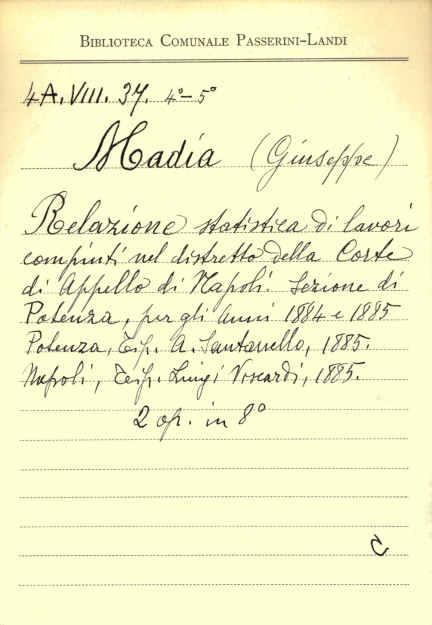 BIBLIOTECA COMUNALE PASSERINI-LANDI
4A. VIII. 37. 4°-5°
Madia (Giuseppe)
Relazione statistica di lavori
compiuti nel distretto della Corte
di Appello di Napoli. Sezione di
Potenza, per gli anni 1884 e 1885
Potenza, Tip. A. Santanello, 1885.
Napoli, Tip. Luigi Voscardi, 1885.
2 op. in 8°
C